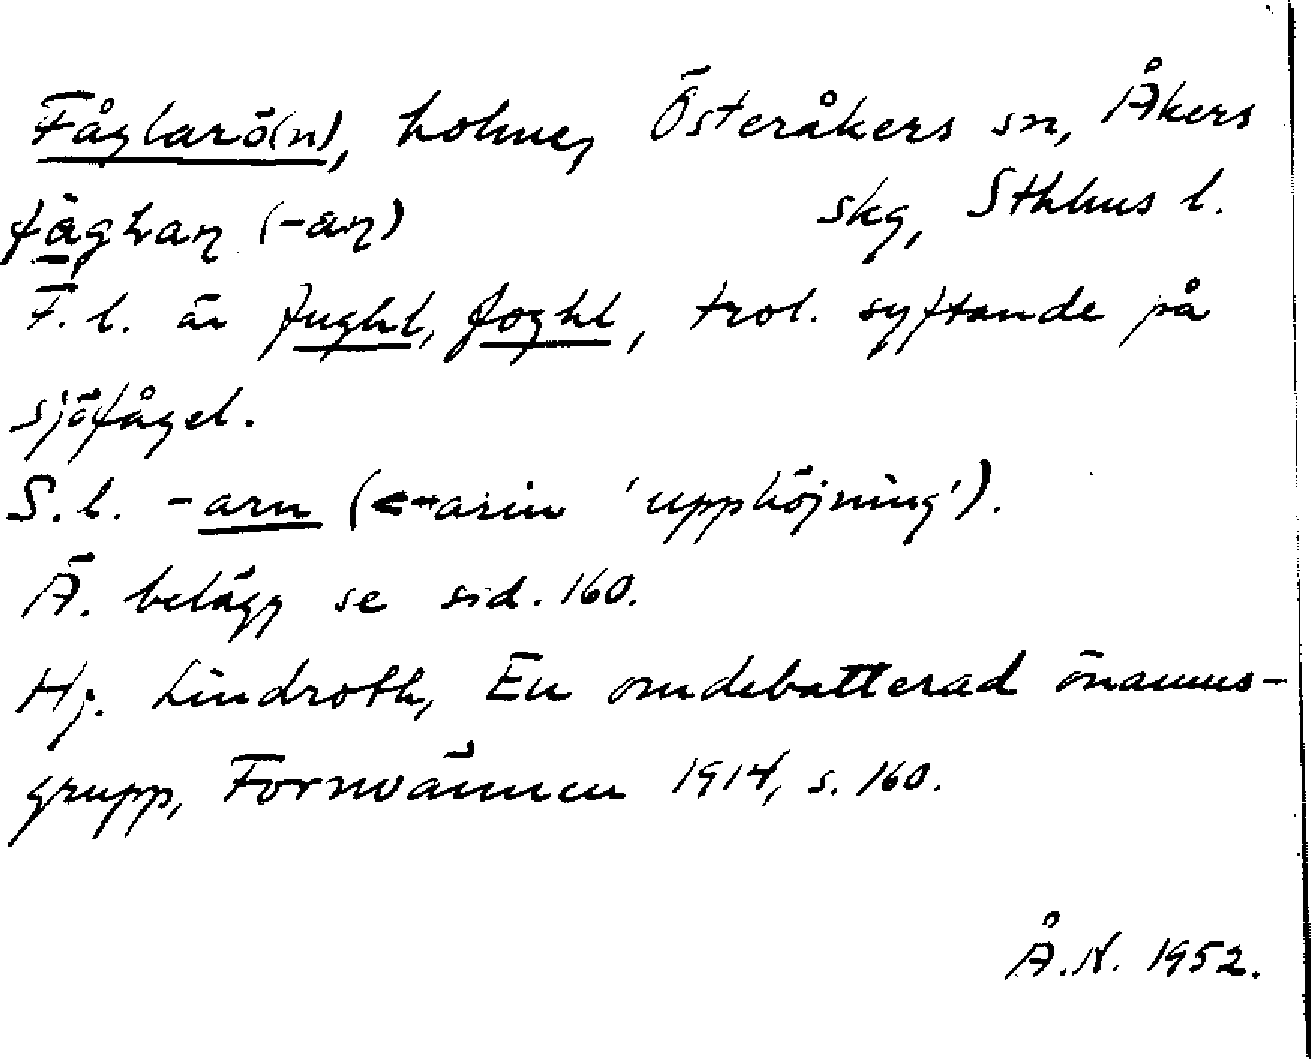 Fåglarö(n), holme, Österåkers sn, Åkers
skg, Sthlms l.
F.l. är fughl, foghl, trol. syftande på
sjöfågel.
S.l. -arn (<-arin 'upphöjning').
Ä. belägg se sid. 160.
Hj. Lindroth, En omdebatterad önamns-
grupp, Fornvännen 1914, s. 160.
Å.N. 1952.